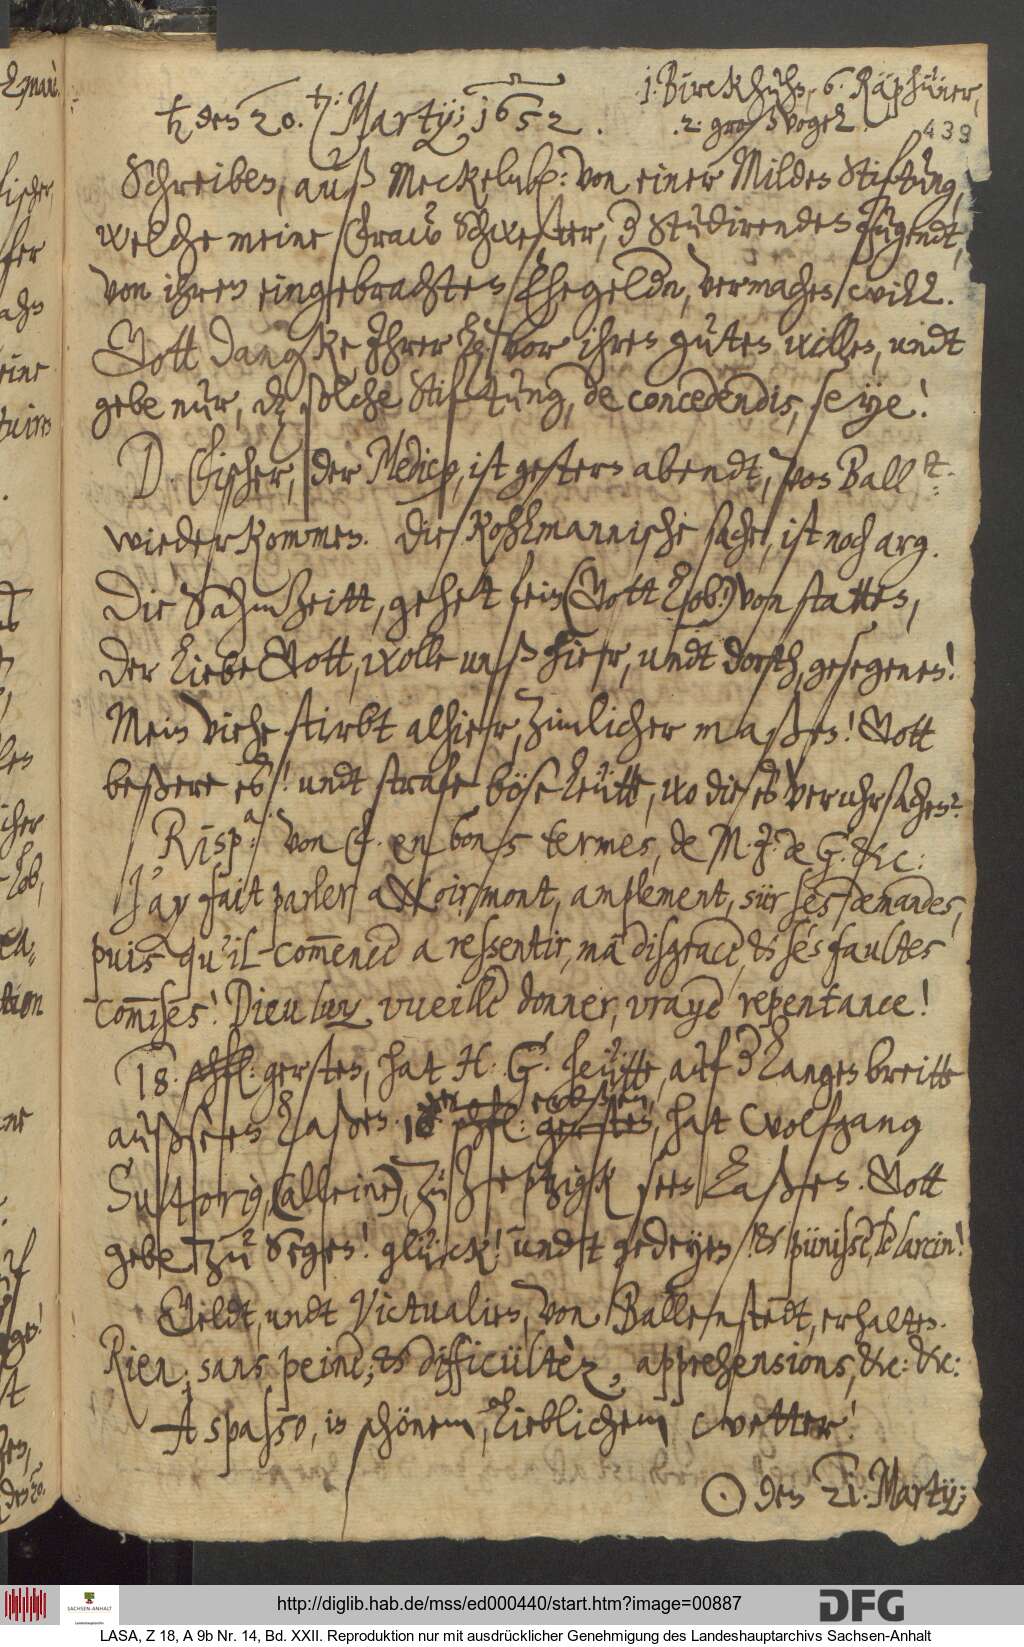 1. Birckhuhn, 6. Räphüner,
♄ den 20. t: Martij; 1652.
.2. groß Vogel.
439
Schreiben, auß Meckelnb: von einer Milden Stiftung,
welche meine Fraw Schwester, d Studirenden Jugendt,
von ihren eingebrachten Ehegeldn, vermachen will.
Gott dancke Ihrer vor ihren guten willen, undt
gebe nur, dz solche Stiftung, de concedendis, seye!
D. Fischer, der Medicus, ist gestern abendt, von Ball
wieder kommen. Die Kohlmannische sache, ist noch arg.
Die Sahm Zeitt, gehet fein (Gott lob!) von statten,
der liebe Gott, wolle unß hier, undt dorth, gesegenen!
Mein viehe stirbt alhier, zimlicher maßen! Gott
beßere es! undt strafe böse leütt, wo die es veruhrsachen?
Risp.a: von en bons termes, de M. J. de G. &c:
J'ay fait parler a Noirmont, amplement, sür ses demandes,
puis qu'il commence a ressentir, ma disgrace, & ses faultes
commises! Dieu luy vueille donner, vraye repentance!
18. schfl: gersten, hat H: G. heütte, auf d langen breitte
außseen laßen. 10 schfl: gersten, hat Wolfgang
erbßen
Suttorius, (alleine), zu Zeptzigk seen laßen. Gott
gebe zu Segen! glück! undt gedeyen! & punisse, le larcin!
Geldt, undt Victualien, von Ballenstedt, erhalten.
Rien, sans peine; & difficultèz, apprehensions, &c: &c:
A spasso, in schönem, lieblichem wetter!
☉ den 21. Martij;
http://diglib.hab.de/mss/ed000440/start.htm?image=00887
DFG
SACHSEN-ANHALT
LASA, Z 18, A 9b Nr. 14, Bd. XXII. Reproduktion nur mit ausdrücklicher Genehmigung des Landeshauptarchivs Sachsen-Anhalt